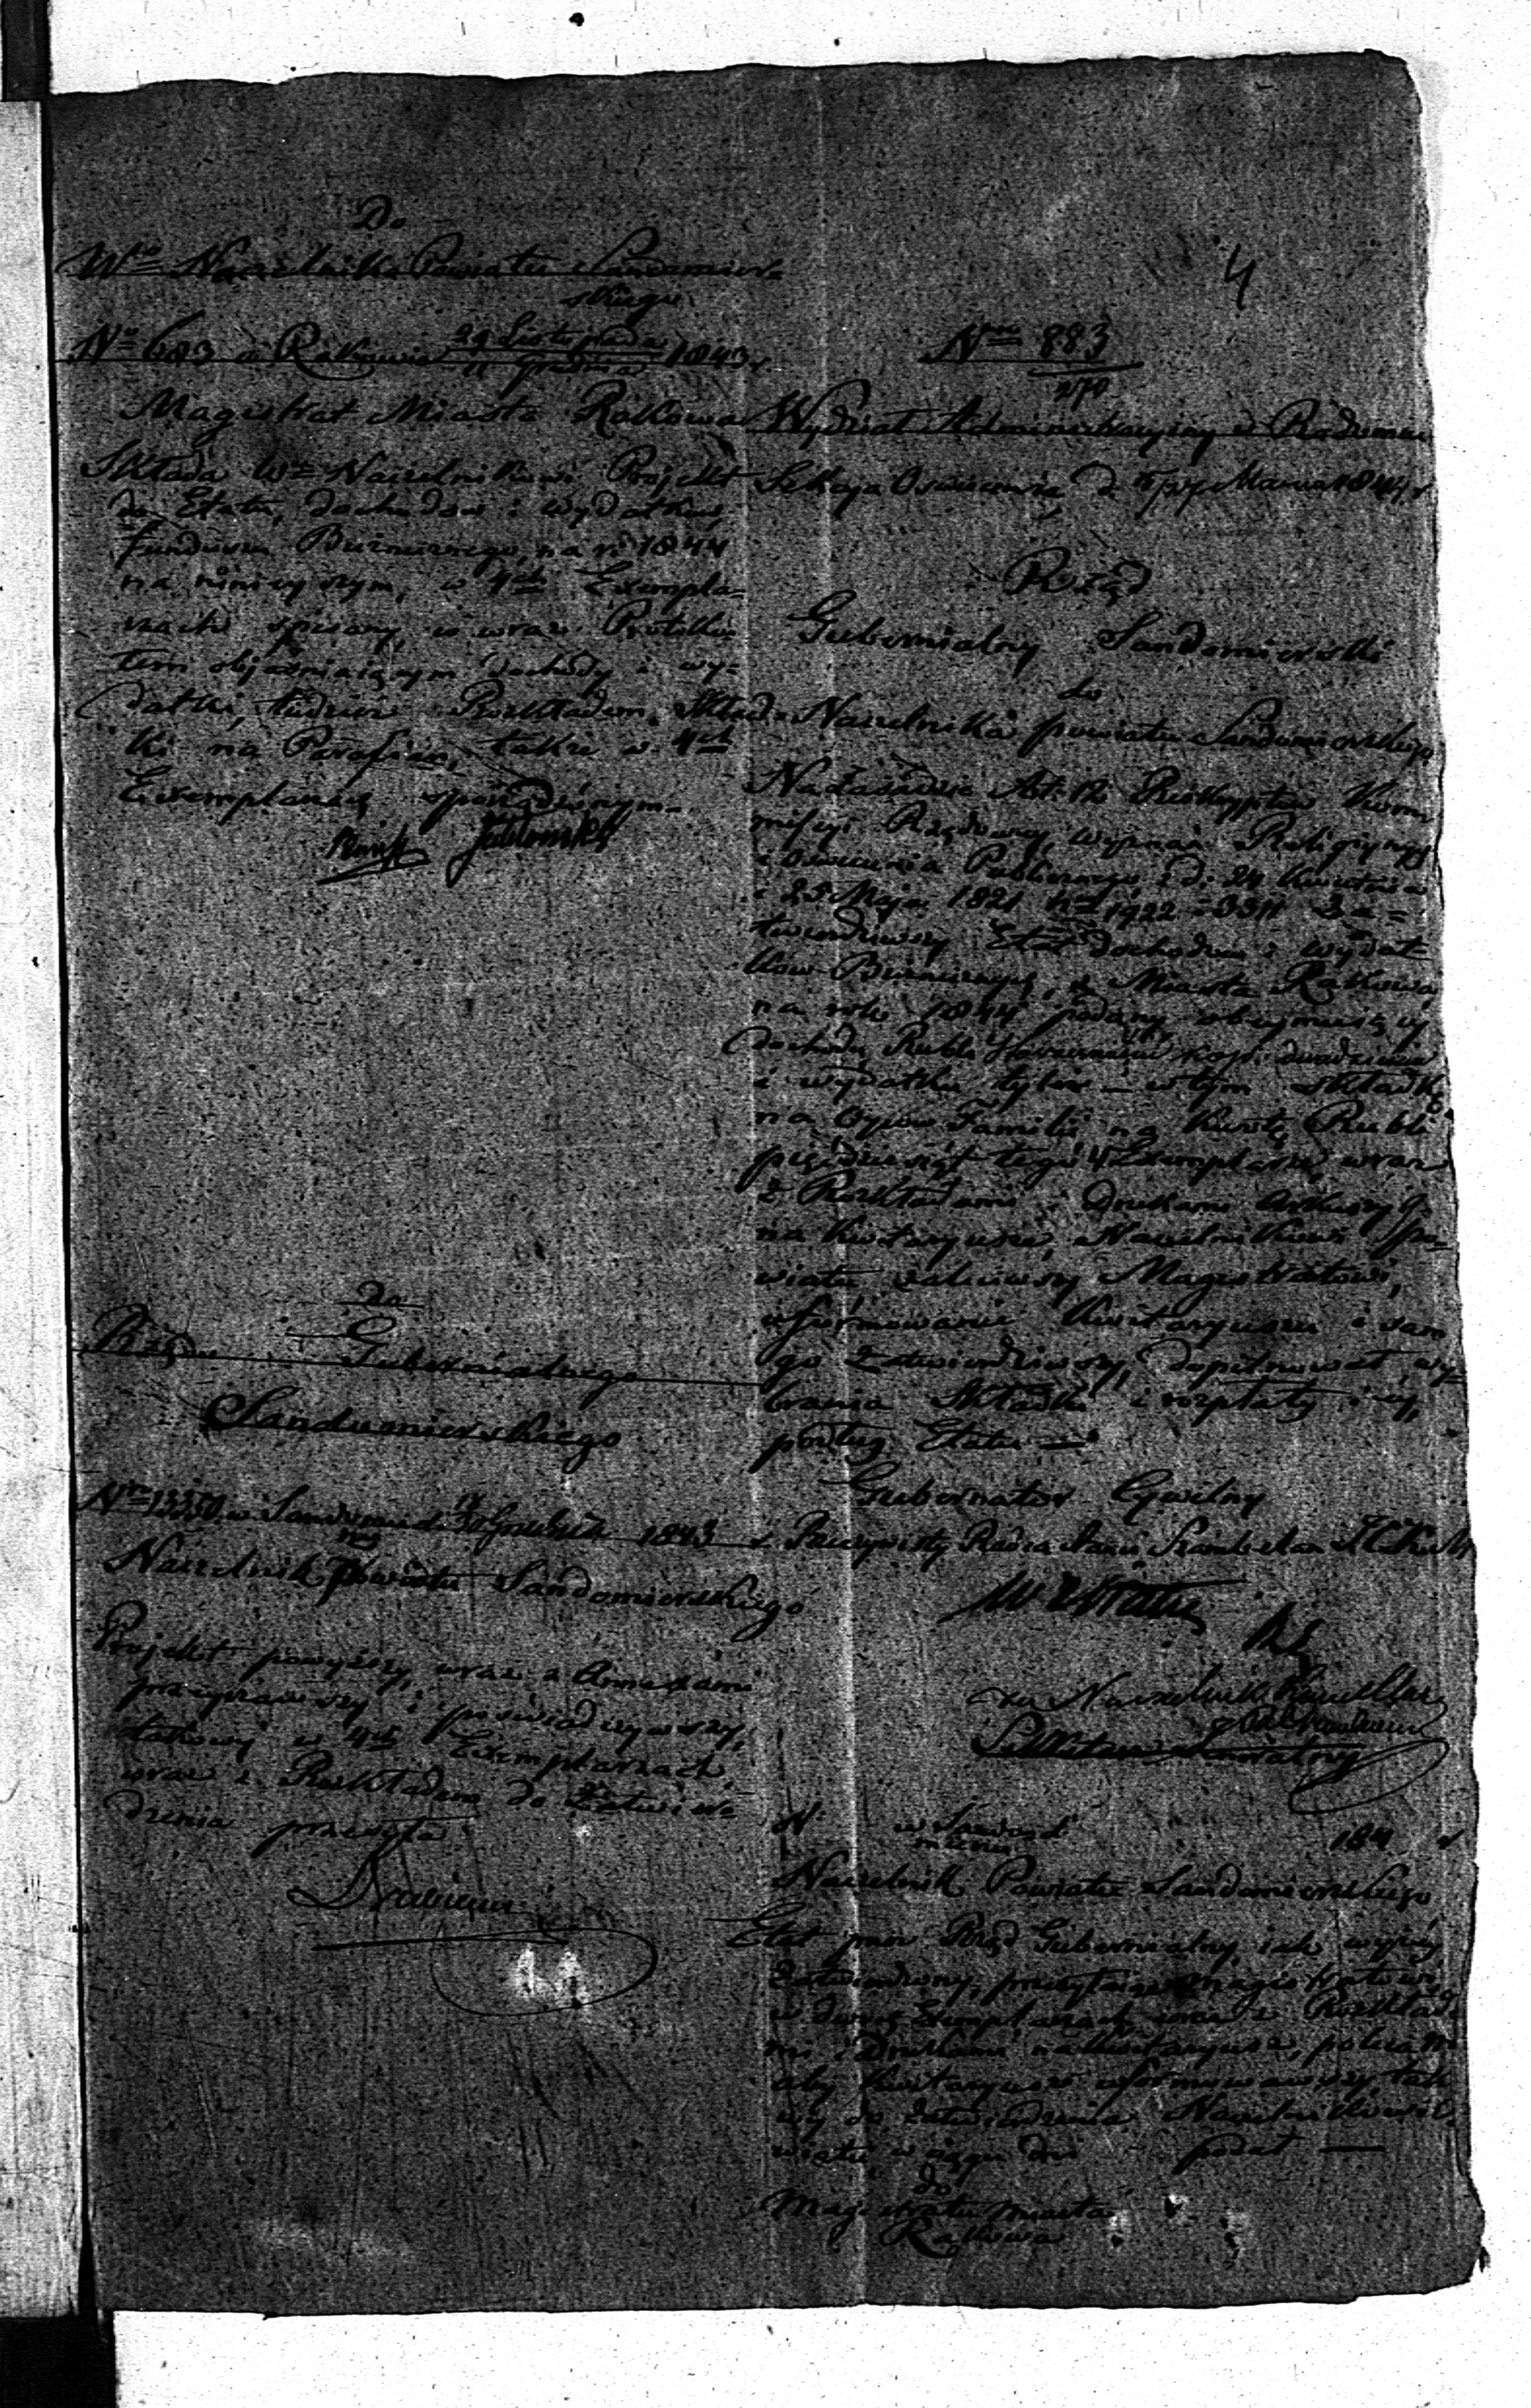 Do
Wo Naczelnika Powiatu Sandomier
skiego
No 683 w Rakowie 29 Listopada / 11 Grudnia 1843 r
Magistrat Miasta Rakowa
Składa Wu Naczelnikowi Projekt
do Etatu, dochodów i wydatków
funduszu Bużniczego, na r. 1844
na niniejszym, w 4ch Exempla-
rzach spisany, wraz Protokó-
łem objaśniającym dochody i wy-
datki, tudzież Rozkładem Skład-
ki na Parafian, także w 4ch
Exemplarzach sporządzonym
do
Rządu Gubernialnego
Sandomierskiego
w Sandomierzu d. 18/30 Grudnia 1843 r
Naczelnik Powiatu Sandomierskiego
Projekt powyższy, wraz z Annexami
przejrzawszy i poświadczywszy,
takowy w 4ch Exemplarzach,
wraz z Rozkładem do Zatwier-
dzenia przesyła
4
Nro 883
Wydział Administracyjny w Radomiu
Sekcya Oświecenia d. Marca 1844 r
Rząd
Gubernialny Sandomierski
do
Naczelnika powiatu Sandomierskiego
Na zasadzie Reskryptów Kom
missyi Rządowey wyznań Religijnych
i Oświecenia Publicznego z d. 24 Kwietnia
i 25 Maja 1821 Nro 1922 - 3311 Za=
twierdziwszy Etat dochodów i wydat
ków Bużniczych, z Miasta Rakowa
na rok 1844 podany, obejmujący
dochodu Rubli kop. dwadzieścia
i wydatku tyleż — w tym składkę
na Ogół Familii na kwotę Rubli
pięćdziesiąt tegoż 4 Exemplarze wraz
z Rozkładami i Drukami Arkuszy
na Kwitaryusze, Naczelnikowi Po-
wiatu zaleciwszy Magistratowi,
uformowanie Kwitaryusza i sam
go Zatwierdziwszy, dopilnował wy
brania Składki i rozpłaty jej,
podług Etatu —
Gubernator Cywilny
Rzeczywisty Radca Stanu Szambelan
Za Naczelnik Kancellar
N. w Sando
mierzu 184 r
Naczelnik Powiatu Sandomierskiego
Etat przez Rząd Gubernialny jak wyżej
Zatwierdzony, przesyłając Magistratowi
w dwóch Exemplarzach wraz z Rozkłada
mi i Drukami na Kwitaryusz, poleca m
aby Kwitaryusz uformowawszy tako
wy do Zatwierdzenia Naczelnikowi Po
wiatu w ciągu dni podał —
do
Magistratu Miasta
Rakowa